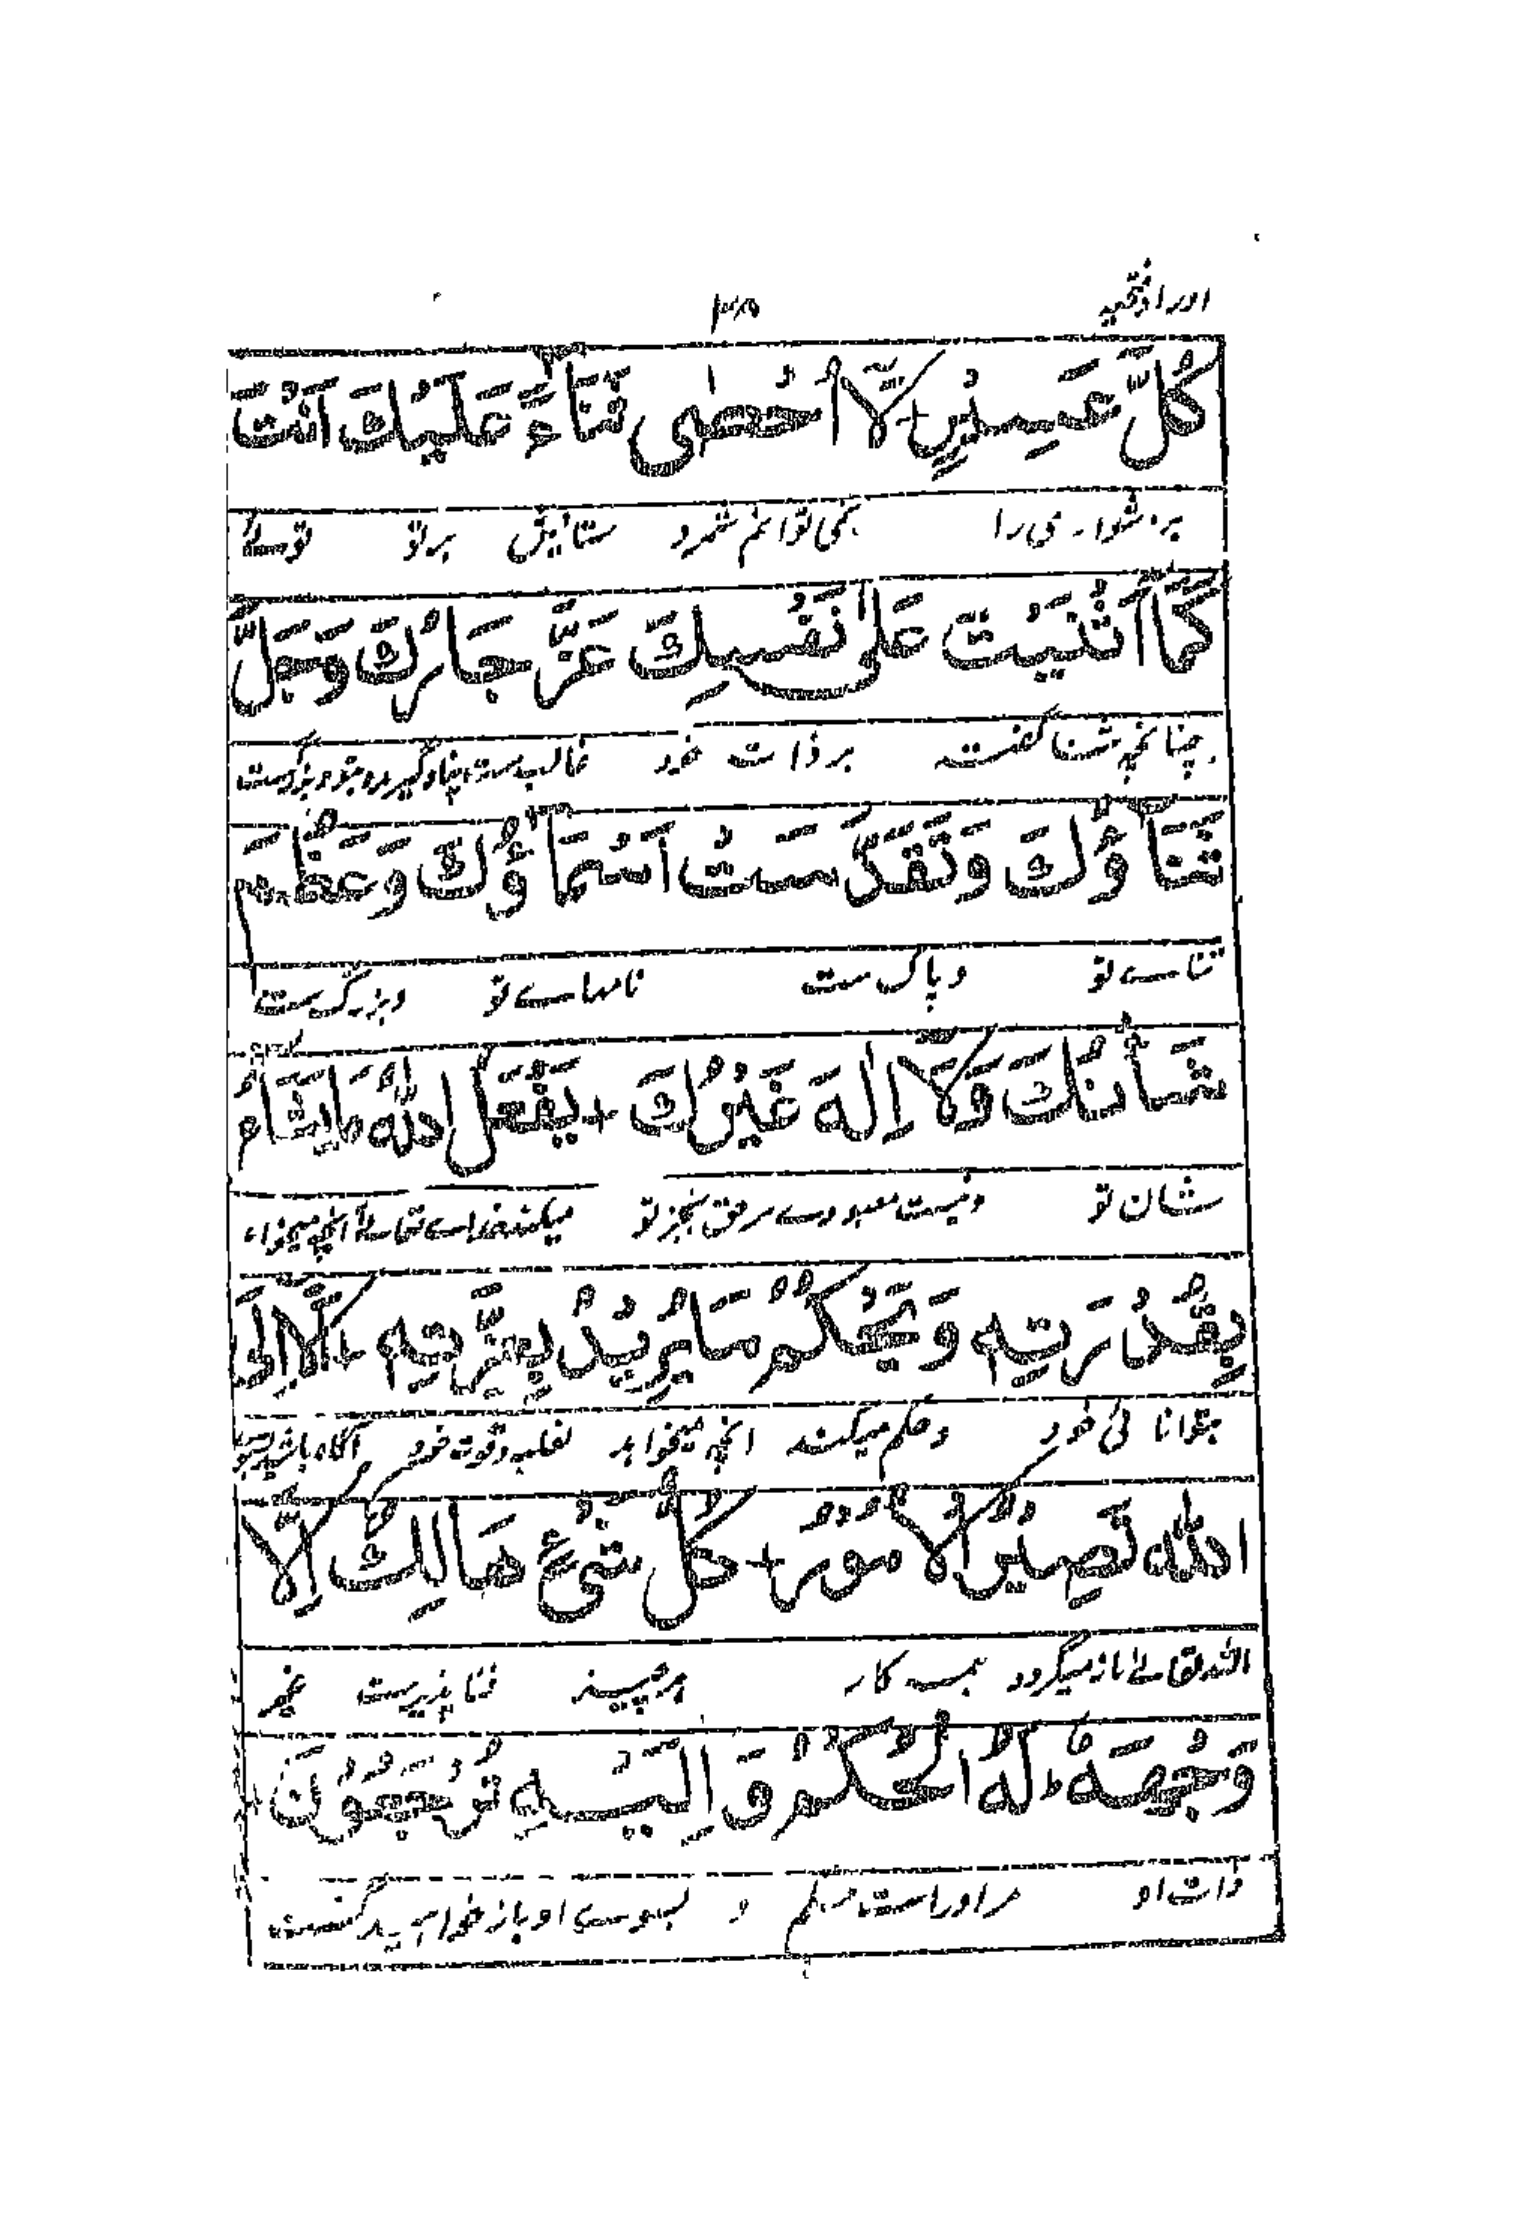 اوراد فتحیہ ۳۸
كُلِّ عَسِيْرٍ + لَّا اُحْصِىْ ثَنَاءً عَلَيْكَ اَنْتَ
ہر دشواری را نمی توانم شمرد ستایش بر تو توئے
كَمَا اَثْنَيْتَ عَلٰى نَفْسِكَ عَزَّ جَارُكَ وَجَلَّ
چنانچہ ثنا گفتے بر ذات خود غالب ست پناہ گیرندہ بتو و بزرگ ست
ثَنَاؤُكَ وَتَقَدَّسَتْ اَسْمَاؤُكَ وَعَظُمَ
ثناے تو و پاک ست نامہاے تو و بزرگ ست
شَانُكَ وَلَا اِلٰهَ غَيْرُكَ + يَفْعَلُ اللّٰهُ مَا يَشَاءُ
شان تو و نیست معبودے بر حق بجز تو میکند خداے تعالےٰ آنچہ میخواہد
بِقُدْرَتِهٖ وَيَحْكُمُ مَا يُرِيْدُ بِعِزَّتِهٖ + اَلَا اِلَى
بتوانائی خود و حکم میکند انچہ میخواہد بغلبہ و قوت خود آگاہ باشید بسوے
اللّٰهِ تَصِيْرُ الْاُمُوْرُ + كُلُّ شَىْءٍ هَالِكٌ اِلَّا
اللہ تعالےٰ باز میگردد ہمہ کار ہر چیز فنا پذیرست غیر
وَجْهَهٗ ط لَهُ الْحُكْمُ وَ اِلَيْهِ تُرْجَعُوْنَ
ذات او مر او راست حکم و بسوی او باز خواہید گشت